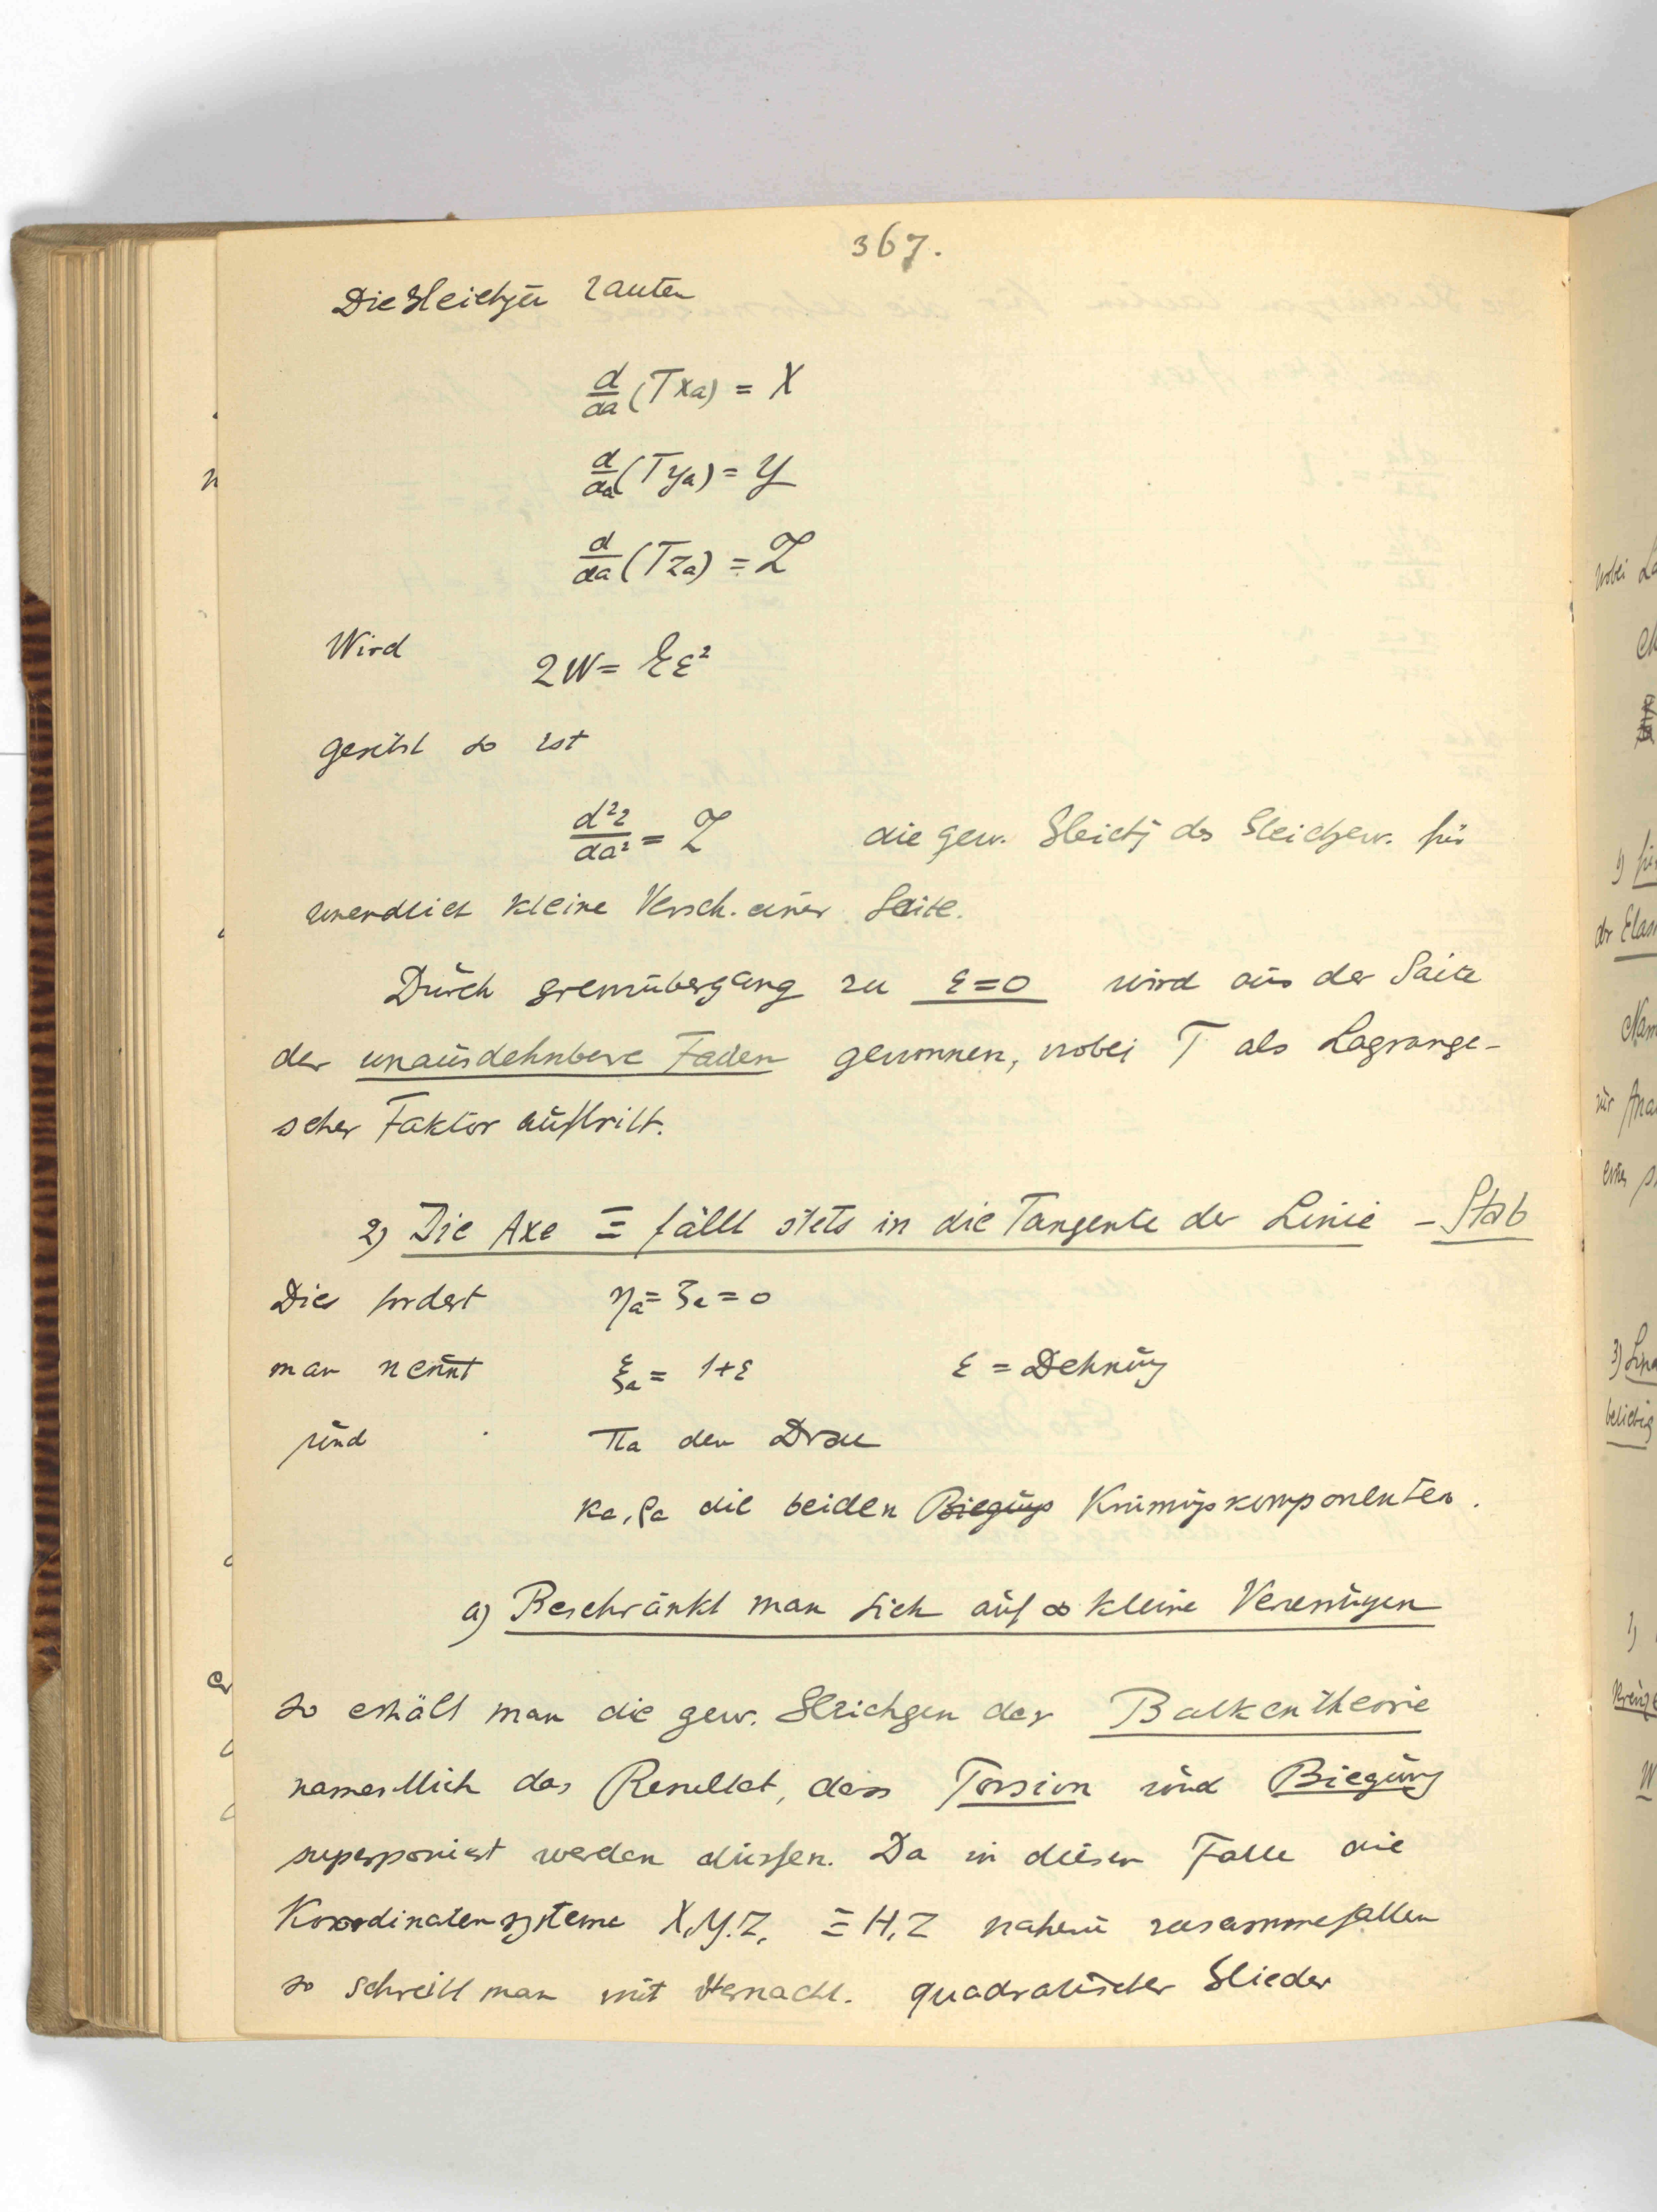 367.
Die Gleichgen lauten
d/da (T xa) = X
d/da (T ya) = Y
d/da (T za) = Z
Wird 2W = Eε²
gesetzt so ist
d²z/da² = Z die gew. Gleichg des Gleichgew. für
unendlich kleine Versch. einer Saite.
Durch Grenzübergang zu ε=0 wird aus der Saite
der unausdehnbare Faden gewonnen, wobei T als Lagrange-
scher Faktor auftritt.
2) Die Axe Ξ fällt stets in die Tangente der Linie – Stab
Dies fordert ηa = ζa = 0
man nennt ξa = 1+ε ε = Dehnung
und πa den Drall
κa, ρa die beiden Biegungs Krümungskomponenten.
a) Beschränkt man sich auf ∞ kleine Verrenkungen
so erhält man die gew. Gleichgen der Balkentheorie
namentlich das Resultat, dass Torsion und Biegung
superponiert werden dürfen. Da in diesem Falle die
Koordinatensysteme X,Y,Z, Ξ H, Z nahezu zusammefallen
so schreibt man mit Vernachl. quadratischer Glieder